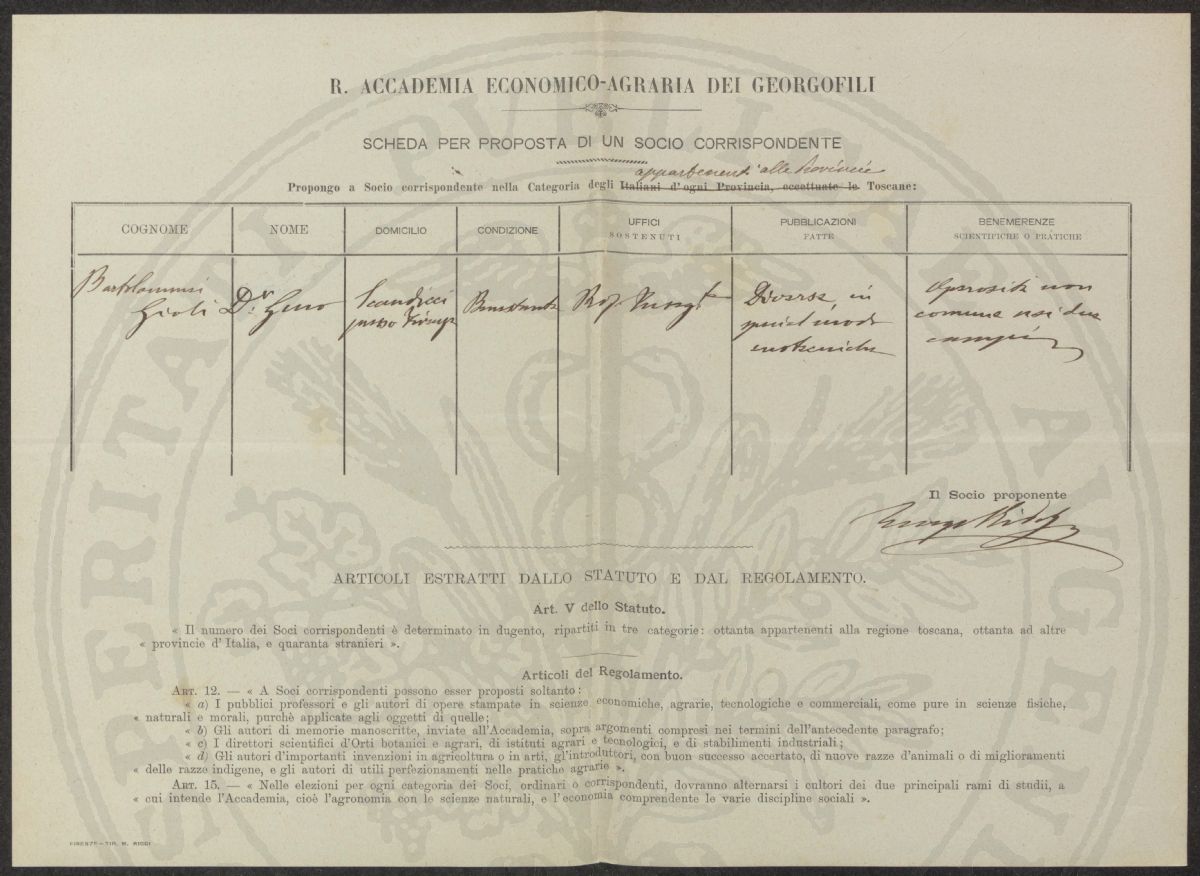 R. ACCADEMIA ECONOMICO-AGRARIA DEI GEORGOFILI
SCHEDA PER PROPOSTA DI UN SOCIO CORRISPONDENTE
appartenenti alle Provincie
Propongo a Socio corrispondente nella Categoria degli Italiani d'ogni Provincia, eccettuate le Toscane:
COGNOME
NOME
DOMICILIO
CONDIZIONE
UFFICI
SOSTENUTI
PUBBLICAZIONI
FATTE
BENEMERENZE
SCIENTIFICHE O PRATICHE
Bartolommei
Gioli
Dr. Gino
Scandicci
presso Firenze
Benestante
Diverse, in
special modo
enotecniche
Operosità non
comune nei due
campi
Il Socio proponente
ARTICOLI ESTRATTI DALLO STATUTO E DAL REGOLAMENTO.
Art. V dello Statuto.
« Il numero dei Soci corrispondenti è determinato in dugento, ripartiti in tre categorie: ottanta appartenenti alla regione toscana, ottanta ad altre
« provincie d'Italia, e quaranta stranieri ».
Articoli del Regolamento.
ART. 12. — « A Soci corrispondenti possono esser proposti soltanto:
« a) I pubblici professori e gli autori di opere stampate in scienze economiche, agrarie, tecnologiche e commerciali, come pure in scienze fisiche,
« naturali e morali, purchè applicate agli oggetti di quelle;
« b) Gli autori di memorie manoscritte, inviate all'Accademia, sopra argomenti compresi nei termini dell'antecedente paragrafo;
« c) I direttori scientifici d'Orti botanici e agrari, di istituti agrari e tecnologici, e di stabilimenti industriali;
« d) Gli autori d'importanti invenzioni in agricoltura o in arti, gl'introduttori, con buon successo accertato, di nuove razze d'animali o di miglioramenti
« delle razze indigene, e gli autori di utili perfezionamenti nelle pratiche agrarie ».
ART. 15. — « Nelle elezioni per ogni categoria dei Soci, ordinari o corrispondenti, dovranno alternarsi i cultori dei due principali rami di studii, a
« cui intende l'Accademia, cioè l'agronomia con le scienze naturali, e l'economia comprendente le varie discipline sociali ».
FIRENZE – TIP. M. RICCI